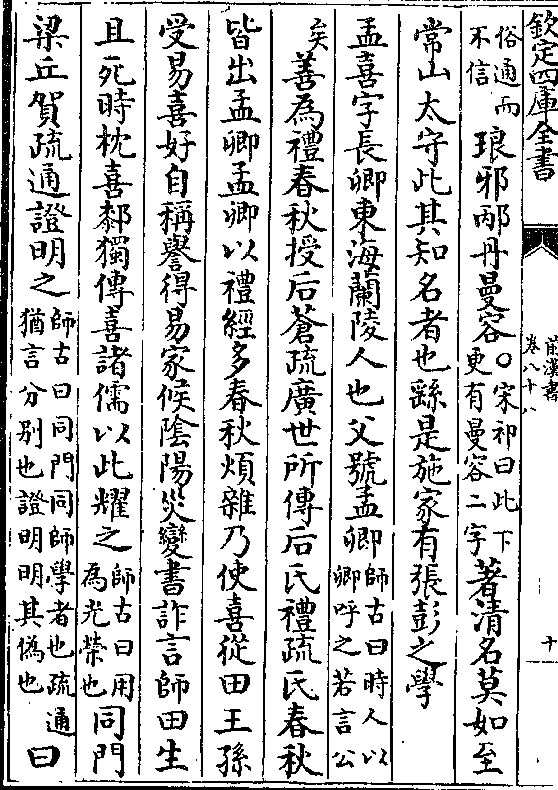 欽定四庫全書
前漢書
卷八十八
十
俗通而
不信
琅邪邴丹曼容
○宋祁曰此下
更有曼容二字
著清名莫如至
常山太守此其知名者也繇是施家有張彭之學
孟喜字長卿東海蘭陵人也父號孟卿
師古曰時人以
卿呼之若言公
矣
善為禮春秋授后蒼疏廣世所傳后氏禮疏氏春秋
皆出孟卿孟卿以禮經多春秋煩雜乃使喜從田王孫
受易喜好自稱譽得易家候隂陽災變書詐言師田生
且死時枕喜䣛獨傳喜諸儒以此耀之
師古曰用
為光榮也
同門
梁丘賀疏通證明之
師古曰同門同師學者也疏通
猶言分别也證明明其偽也
曰